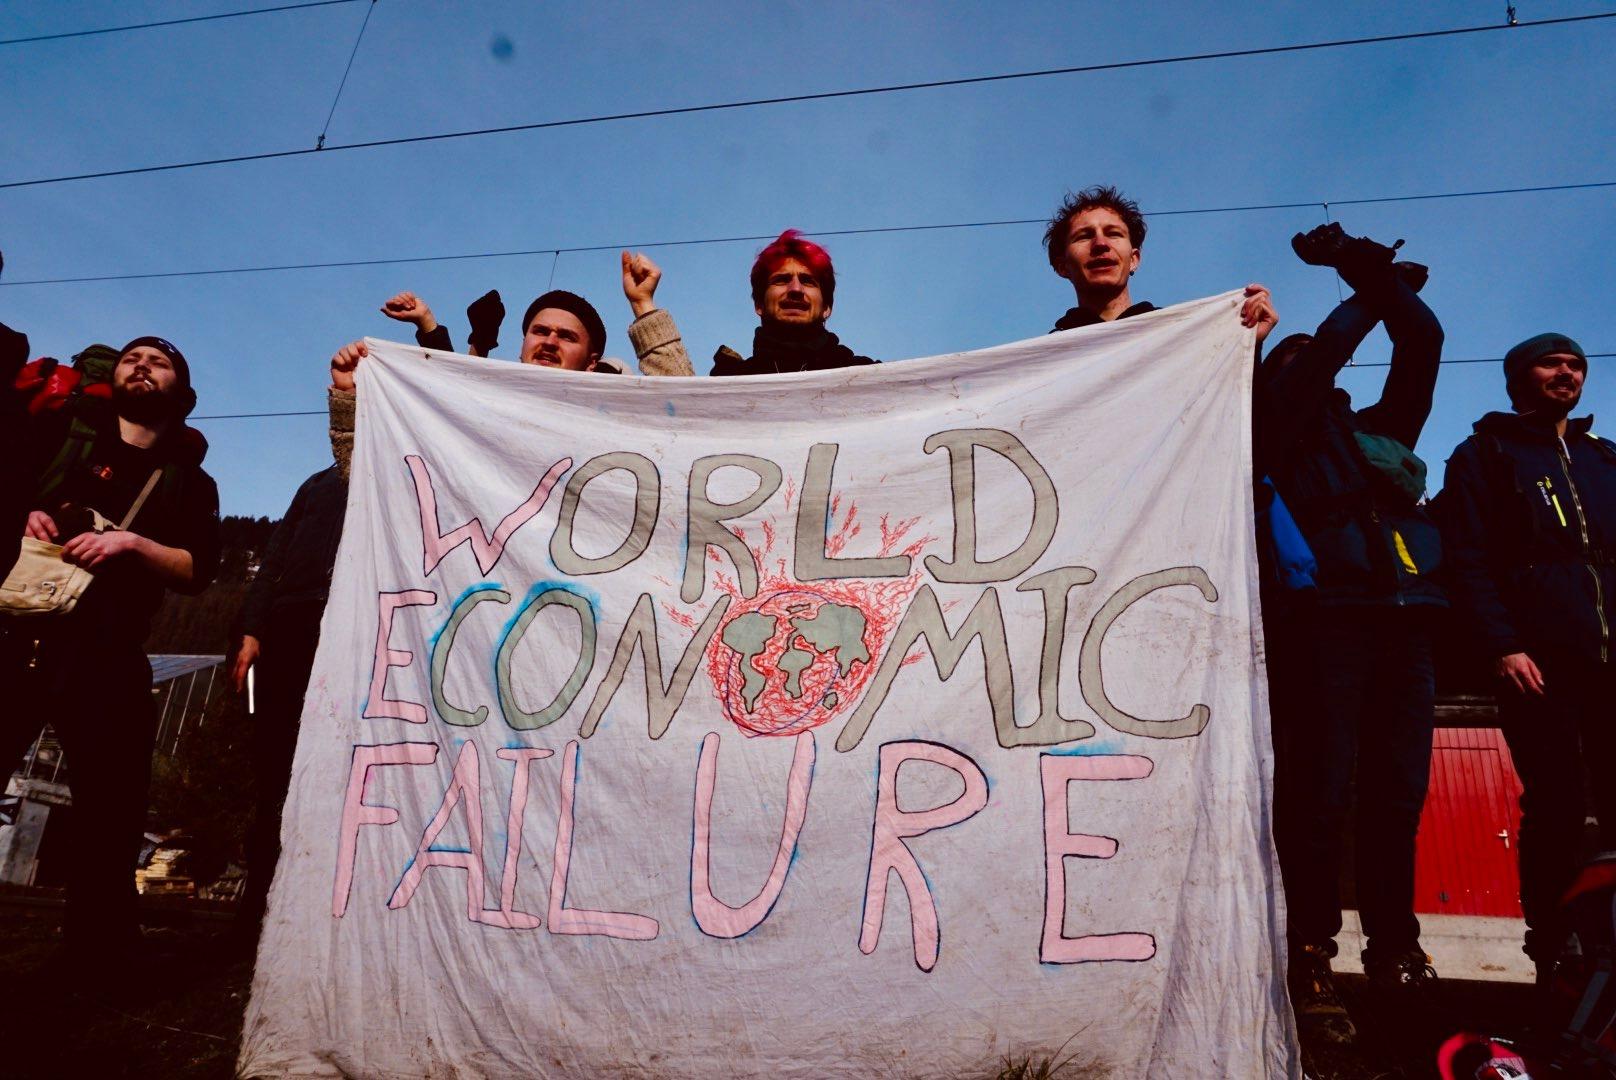 WORLD
ECONOMIC
FAILURE